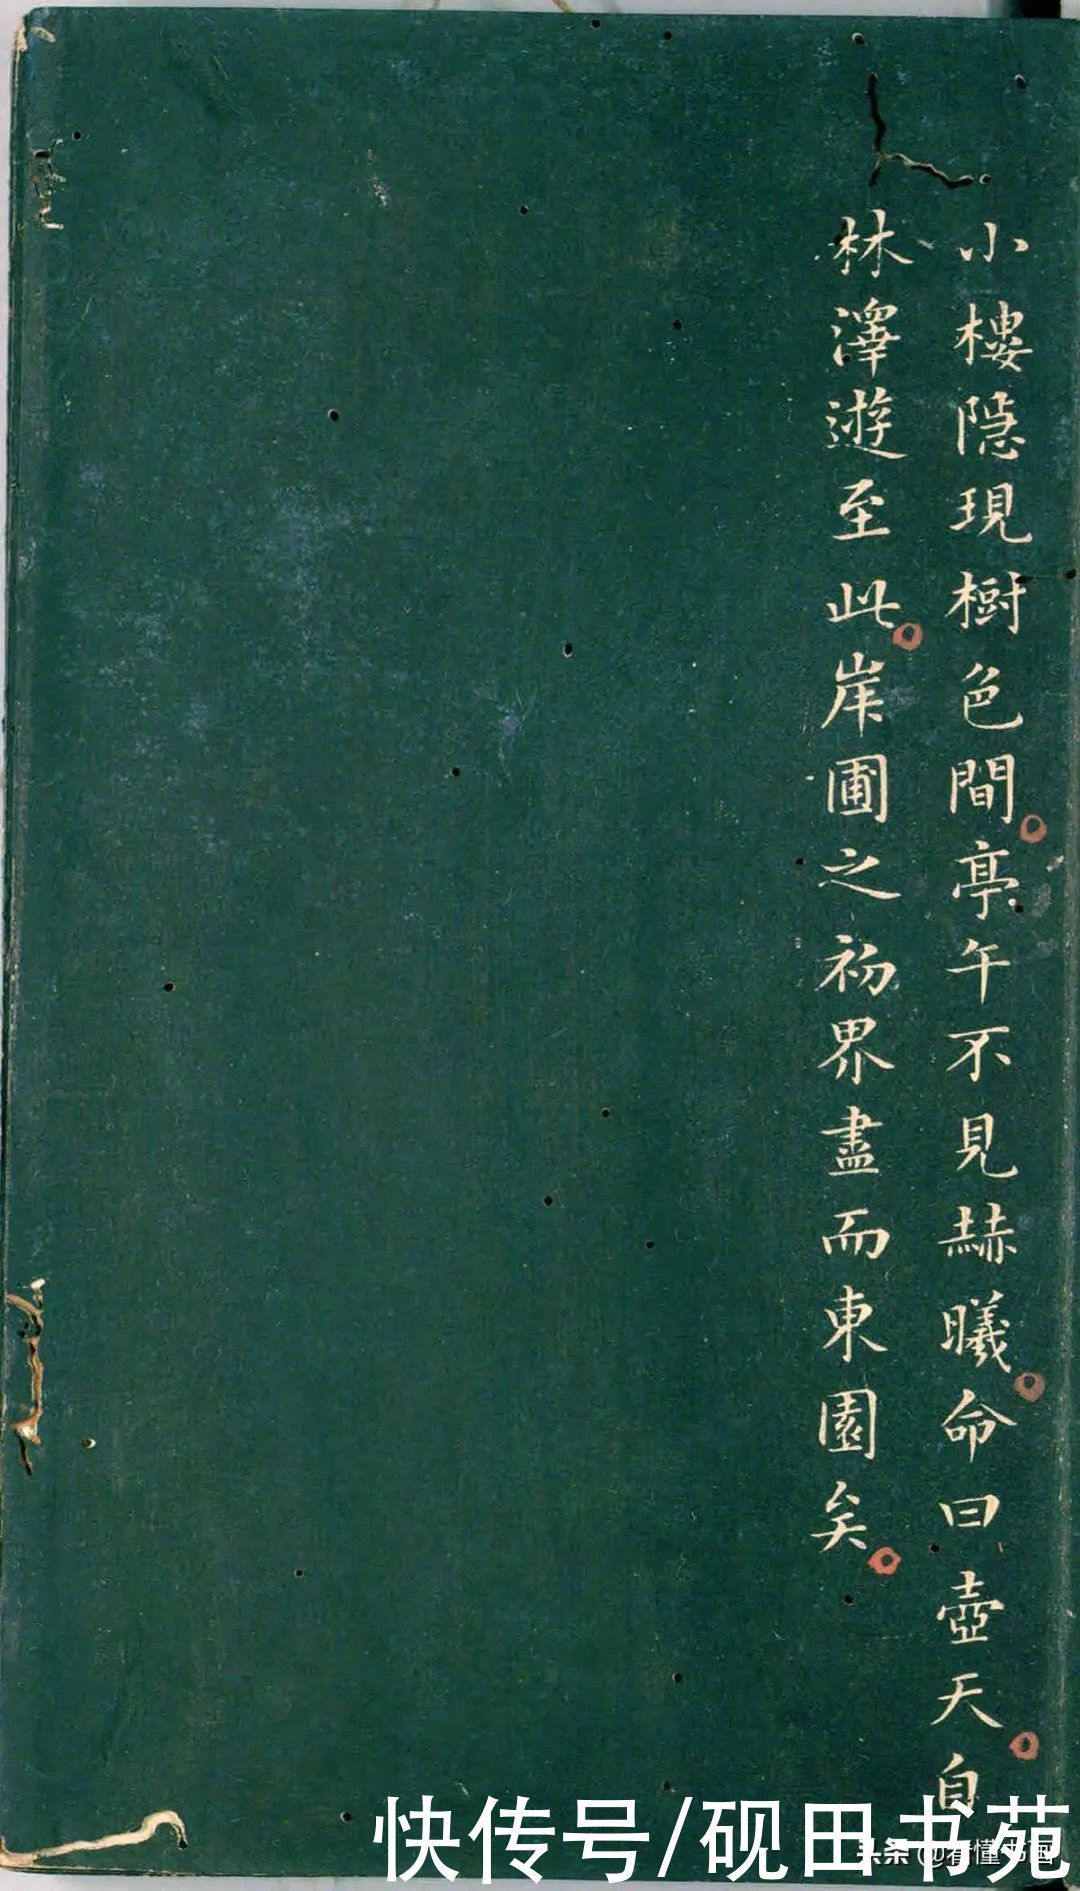 小樓隠現樹色間亭午不見赫曦命曰壺天自
林澤遊至此岸圃之初界盡而東園矣
快传号/砚田书苑
头条@看懂书画